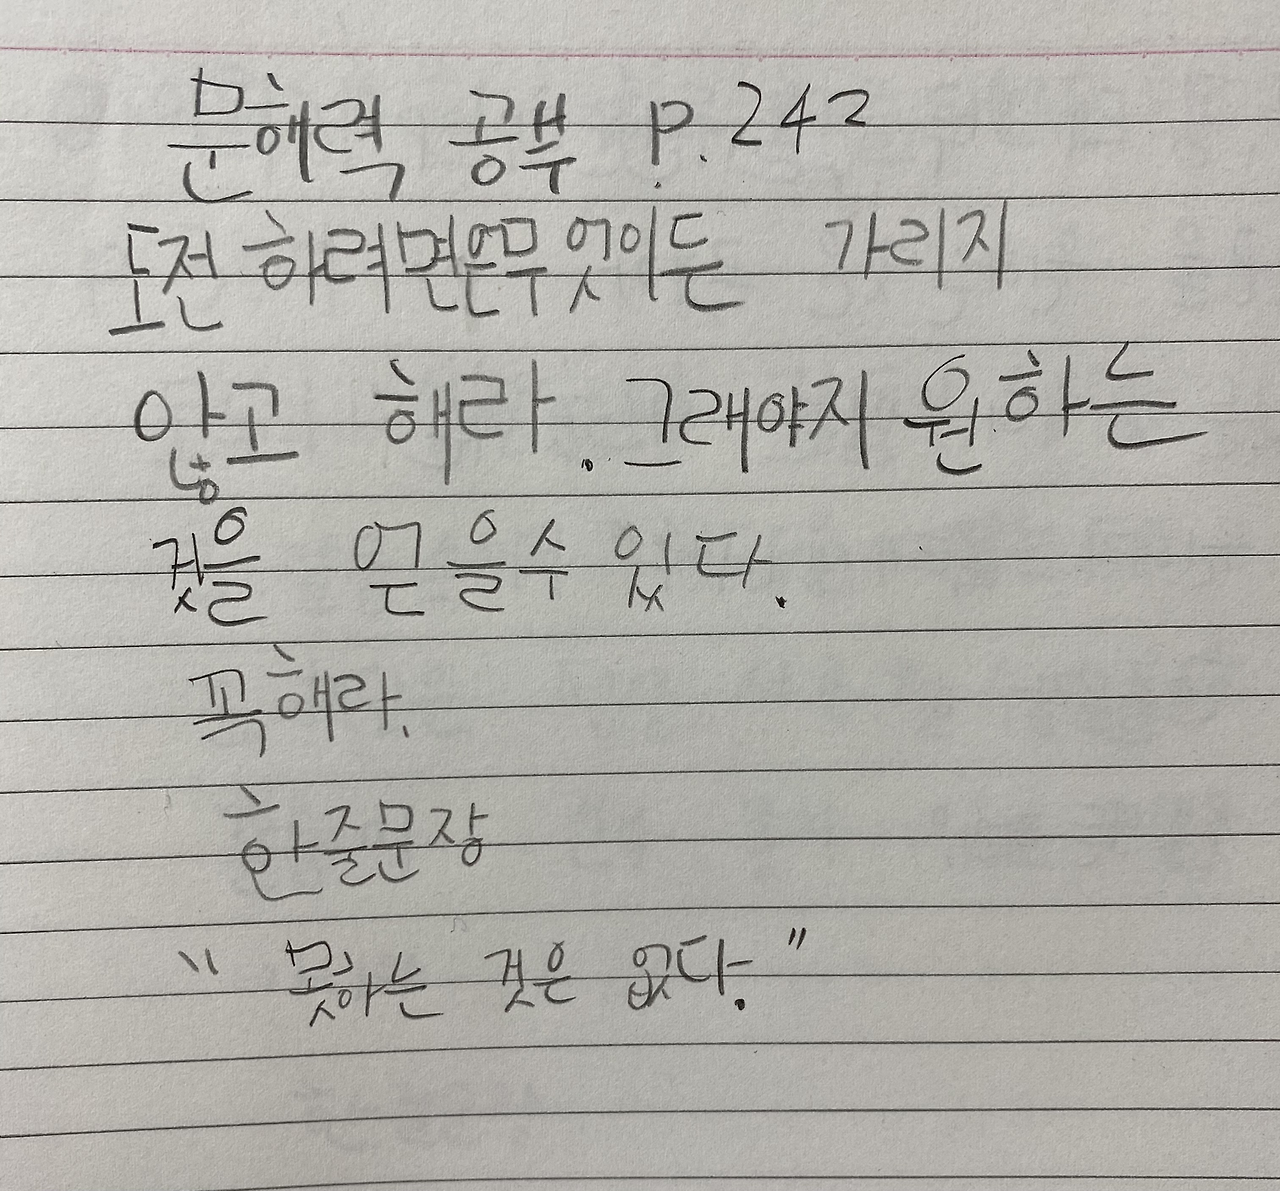 문해력 공부 p.242
도전하려면은무엇이든 가리지
않고 해라. 그래야지 원하는
것을 얻을수 있다.
꼭해라.
한줄문장
"못하는 것은 없다."